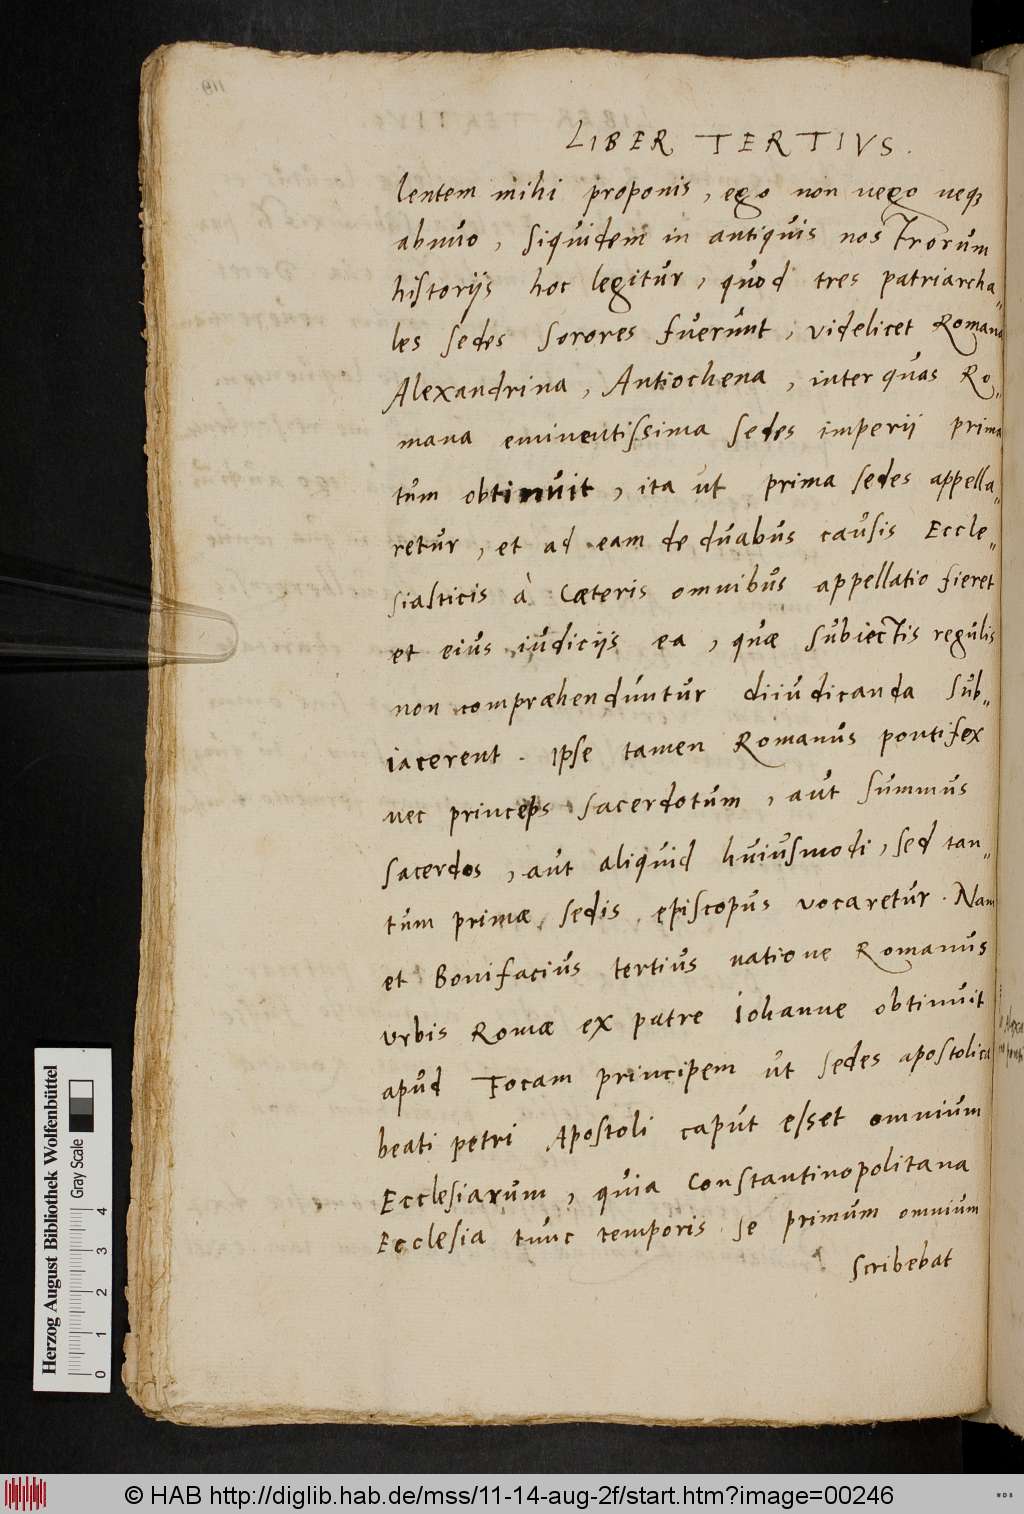 LIBER TERTIVS.
lentem mihi proponis, ego non nego neq
abnuo, siquidem in antiquis nostrorum
historijs hoc legitur, quod tres patriarcha„
les sedes sorores fuerunt, videlicet Romana
Alexandrina, Antiochena, inter quas Ro„
mana eminentissima sedes imperii prima
tum obtinuit, ita ut prima sedes appella„
retur, et ad eam de duabus causis Eccle„
siasticis à cæteris omnibus appellatio fieret
et eius iudicijs ea, quæ subiectis regulis
non compræhenduntur diiudicanda sub„
iacerent. Ipse tamen Romanus pontifex
nec princeps sacerdotum, aut summus
sacerdos, aut aliquid huiusmodi, sed tan„
tum primæ sedis episcopus vocaretur. Nam
et Bonifacius tertius natione Romanus
urbis Romæ ex patre Iohanne obtinuit
apud Focam principem ut sedes apostolica
beati petri Apostoli caput esset omnium
Ecclesiarum, quia Constantinopolitana
Ecclesia tunc temporis se primum omnium
scribebat
Herzog August Bibliothek Wolfenbüttel
Gray Scale
0 1 2 3 4
© HAB http://diglib.hab.de/mss/11-14-aug-2f/start.htm?image=00246